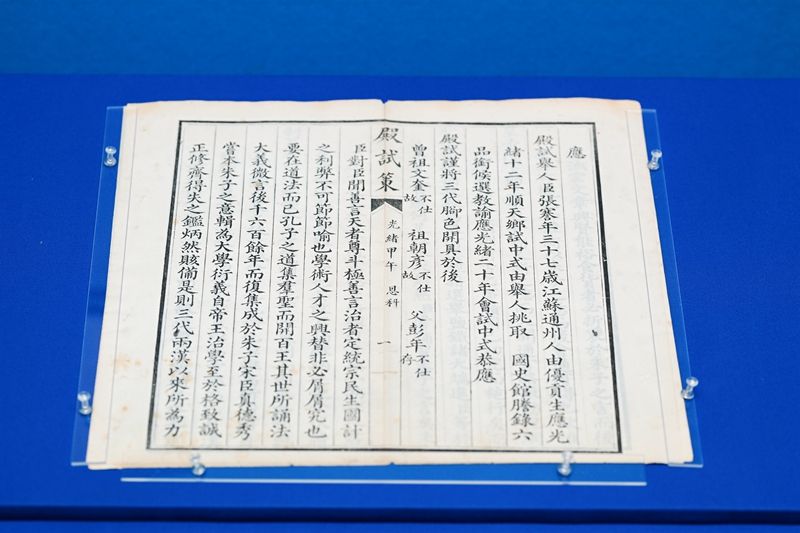 應
殿試舉人臣張謇年三十七歲江蘇通州人由優貢生應光
緒十二年順天鄉試中式由舉人挑取　國史館謄錄六
品銜候選教諭應光緒二十年會試中式恭應
殿試謹將三代腳色開具於後
曾祖文奎不仕故　祖朝彥不仕故　父彭年不仕存
殿試策
光緒甲午　恩科　一
臣對臣聞善言天者尊斗極善言治者定統宗民生國計
之利弊不可節節喻也學術人才之興替非必屑屑究也
要在道法而已孔子之道集羣聖而開百王其世所誦法
大義微言後千六百餘年而復集成於朱子宋臣真德秀
嘗本朱子之意輯為大學衍義自帝王治學至於格致誠
正修齊得失之鑑炳然賅備是則三代兩漢以來所為力